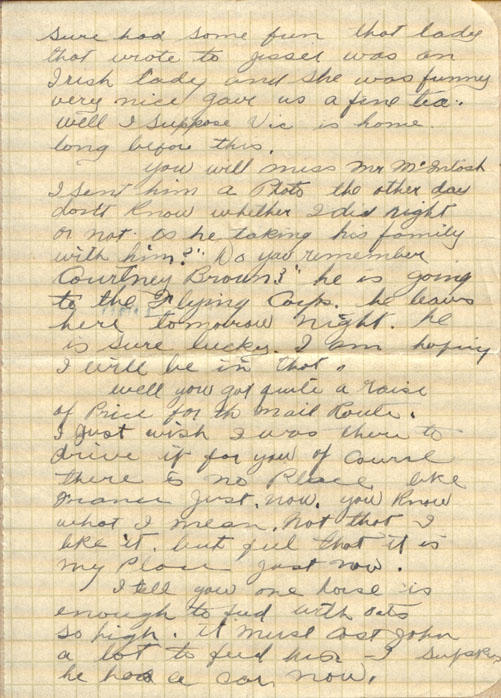 sure had some fun that lady
that wrote to Jessel was an
Irish lady and she was funny
very nice gave us a fine tea.
well I suppose Vic is home
long before this.
you will miss Mr McIntosh
I sent him a Photo the other day
don't know whether I did right
or not. Is he taking his family
with him?" Do you remember
Courtney Brown?" he is going
to the Flying Corps. he leaves
here tomorrow night. he
is sure lucky. I am hoping
I will be in that.
well you got quite a raise
of Price for th mail Route.
I Just wish I was there to
drive it for you of Course
there is no Place like
France Just. now. you know
what I mean. Not that I
like it. but feel that it is
my Place Just now.
I tell you one horse is
enough to feed with oats
so high. it must cost John
a lot to feed his - I supose
he has a car now.